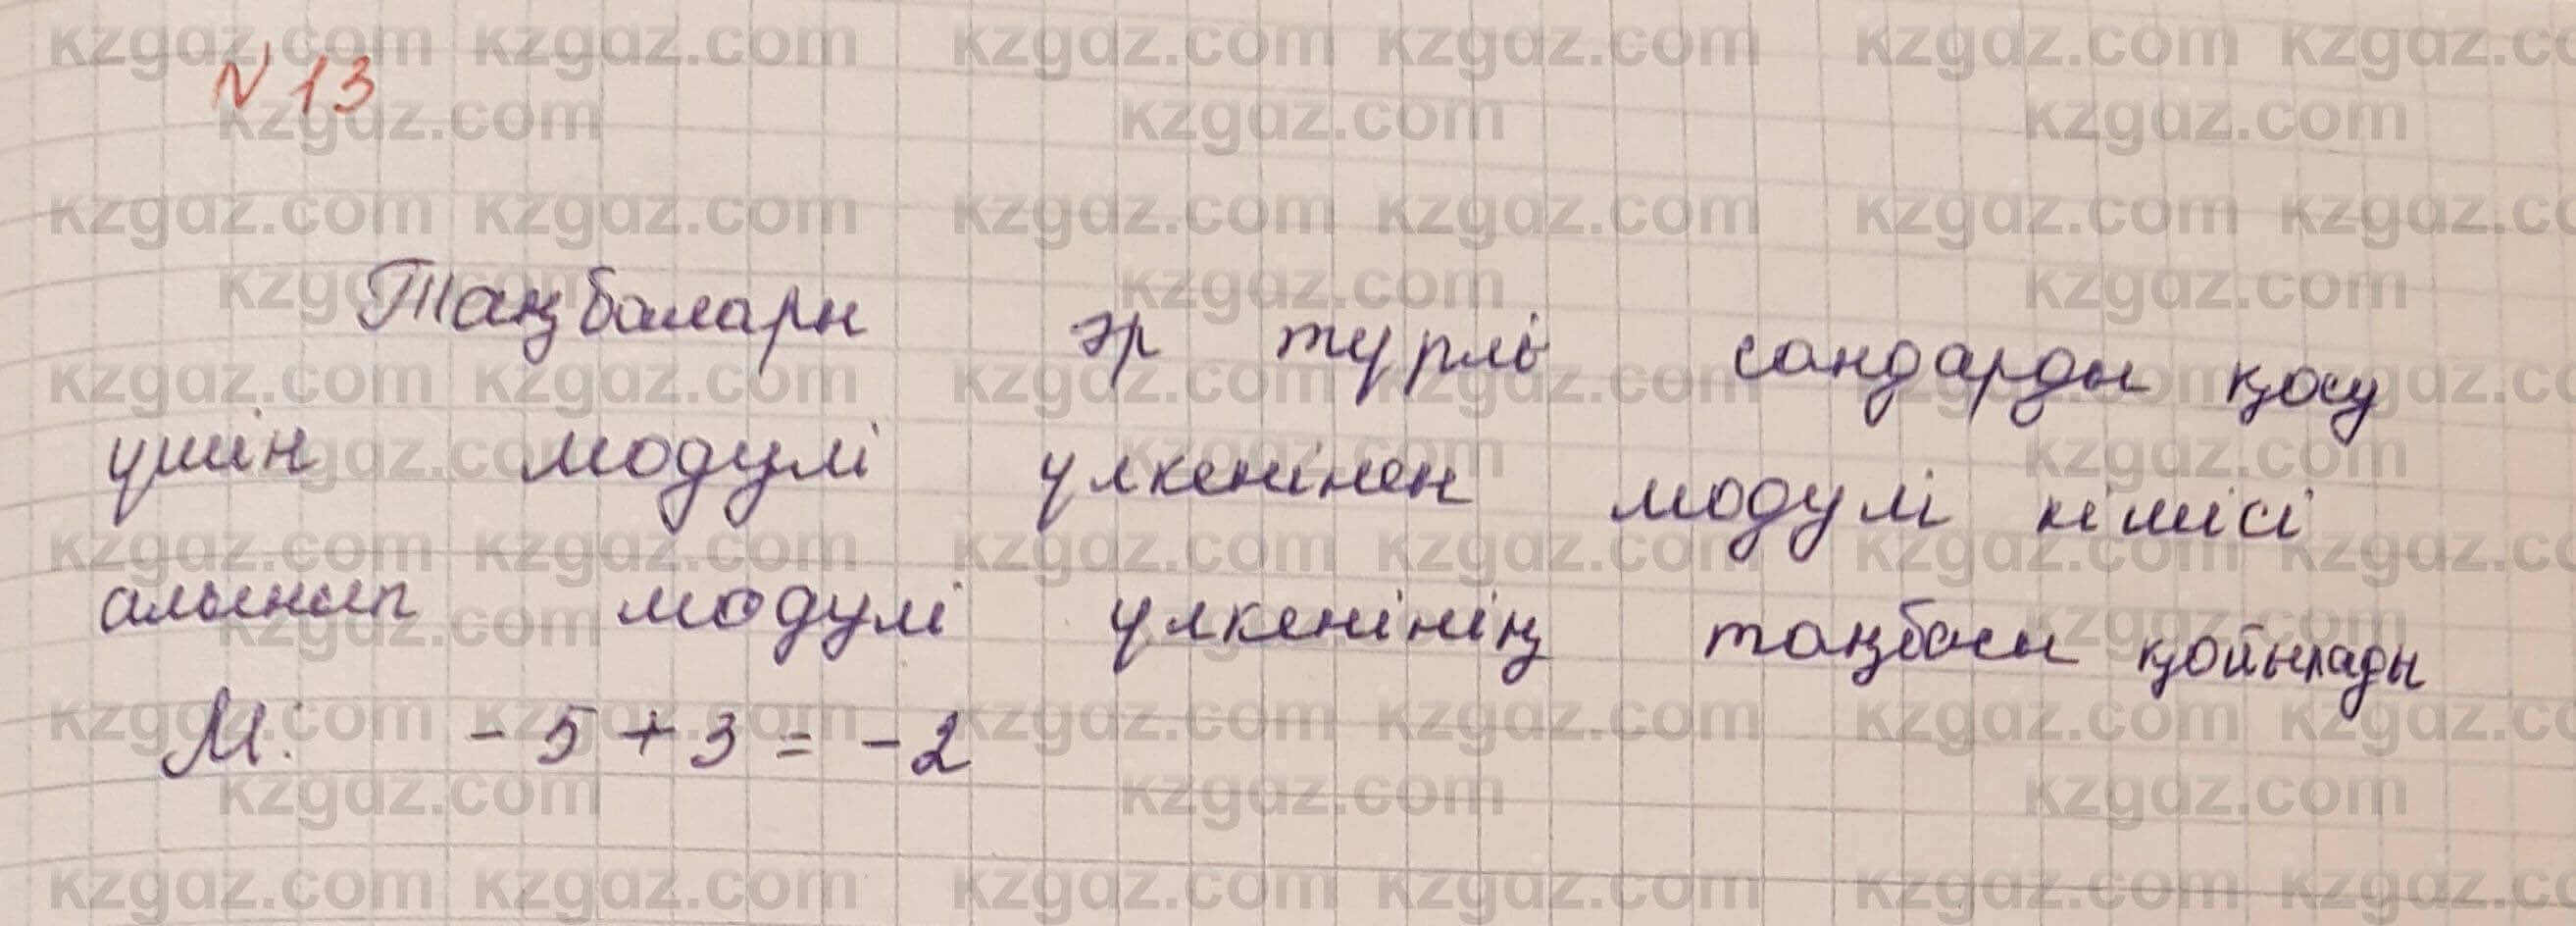 N 13
Таңбалары әр түрлі сандарды қосу
үшін модулі үлкенінен модулі кішісі
алынып модулі үлкенінің таңбасы қойылады
М: - 5 + 3 = - 2